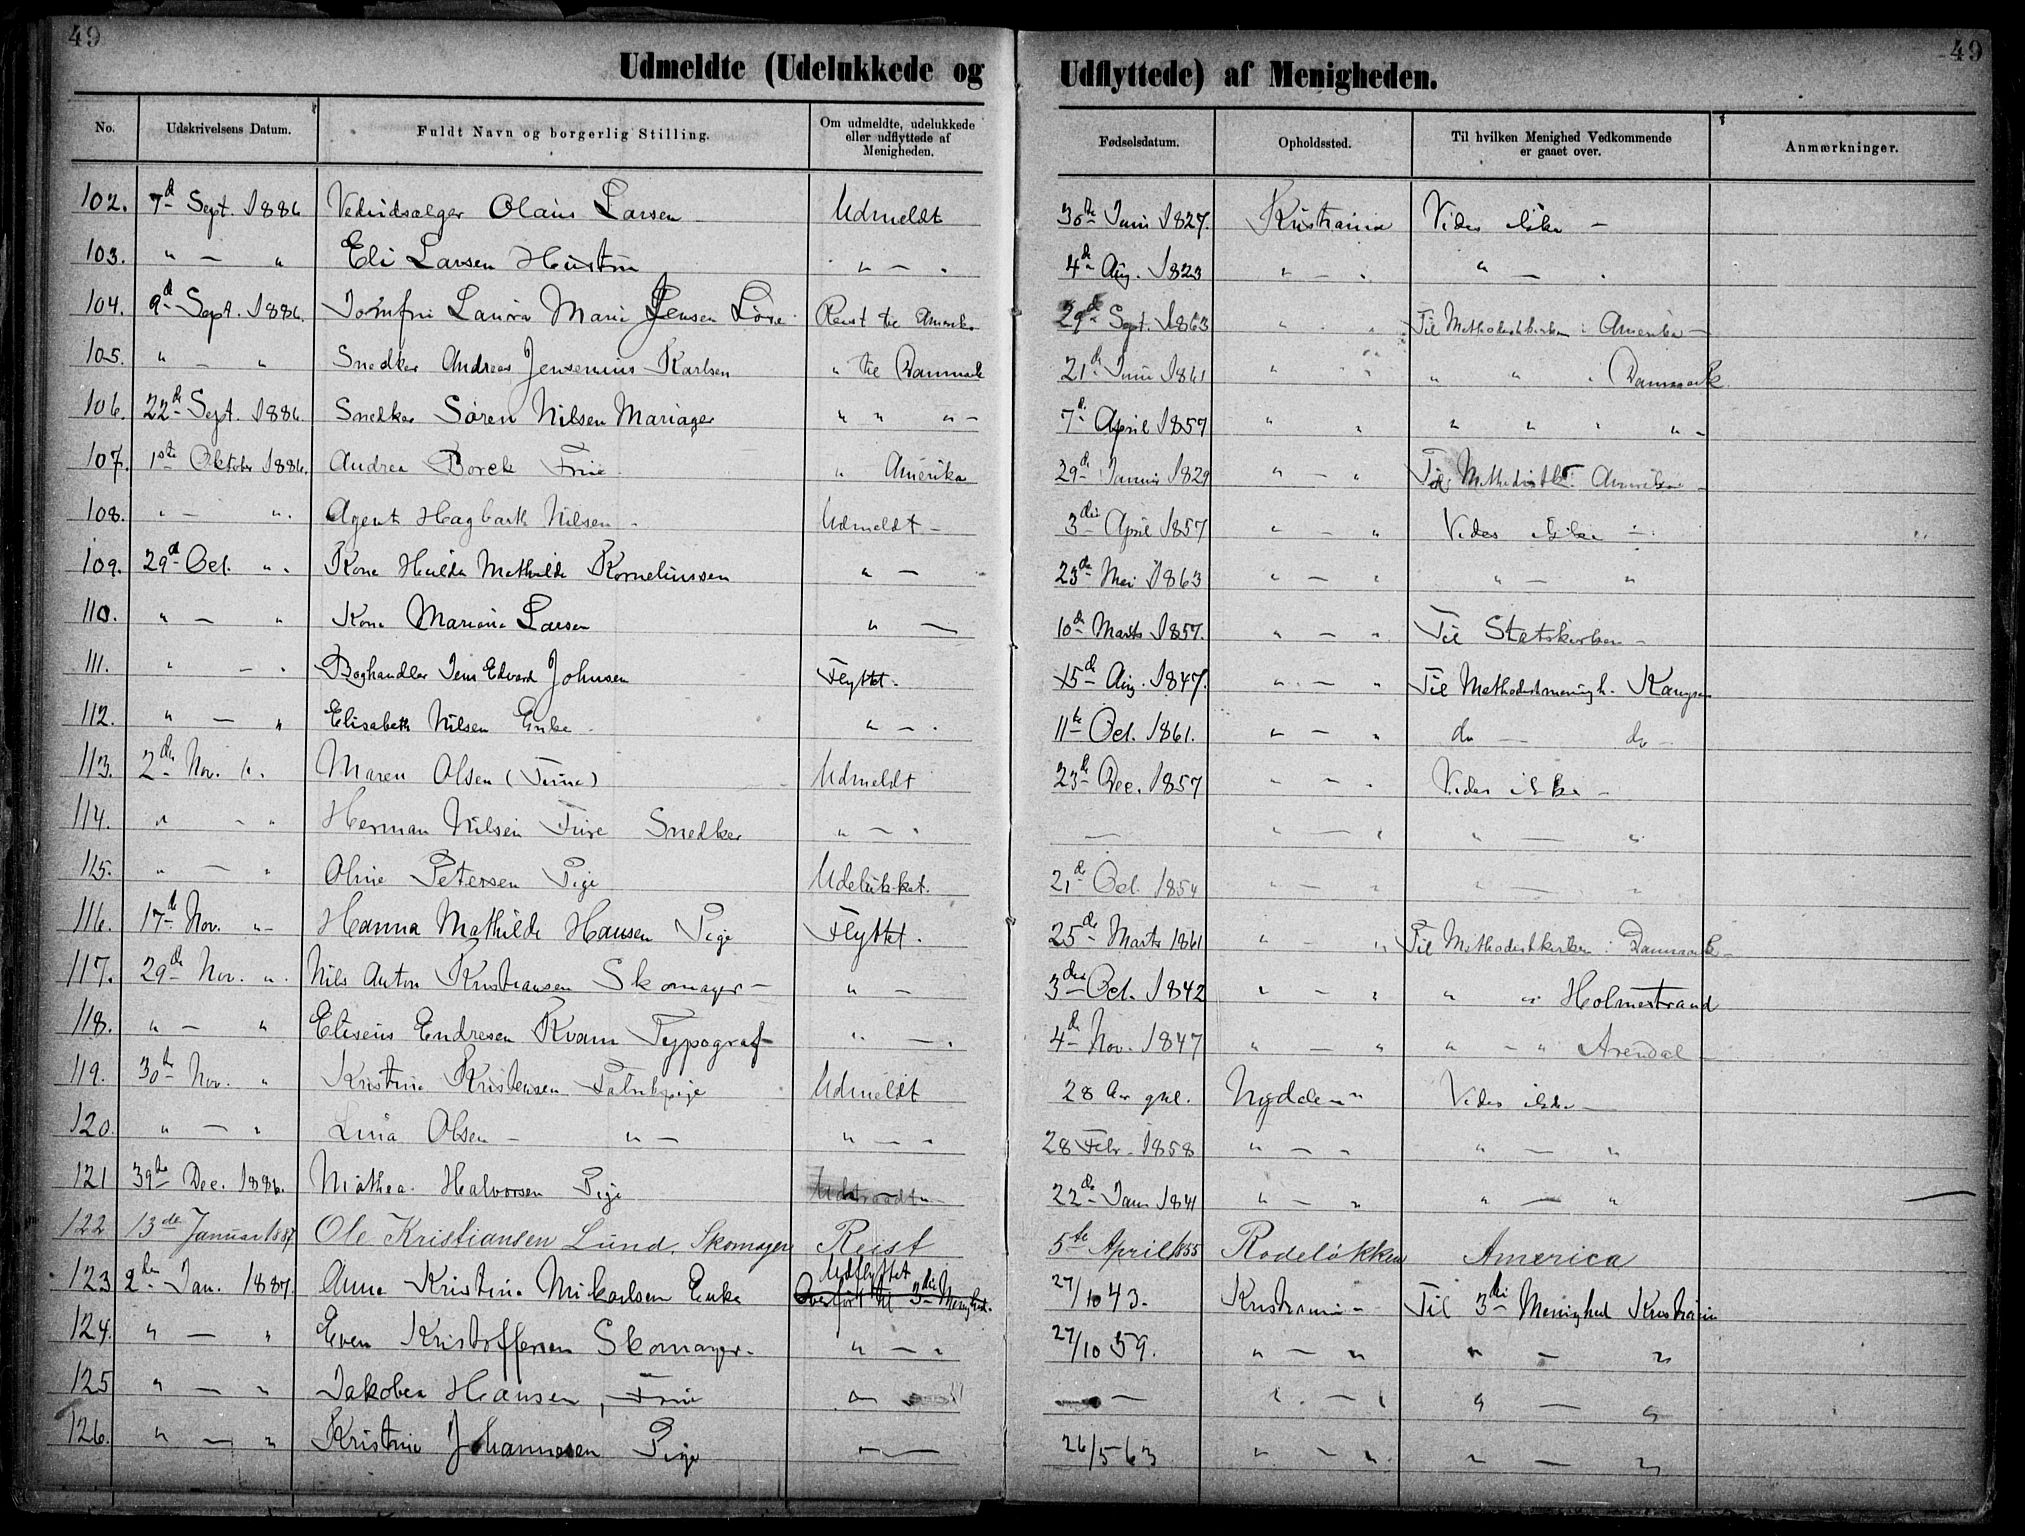 49 49
Udmeldte (Udelukkede og Udflyttede) af Menigheden.
No. Udskrivelsens Datum. Fuldt Navn og borgerlig Stilling. Om udmeldte, udelukkede eller udflyttede af Menigheden. Fødselsdatum. Opholdssted. Til hvilken Menighed Vedkommende er gaaet over. Anmærkninger.
102. 7d Sept. 1886 Olaus Larsen Udmeldt 30te Juni 1827. Kristiania Vides ikke —
103. " — " Eli Larsen Hustru " — " 4de Aug. 1823 " — " " — "
104. 9d Sept. 1886. Jomfru Laura Marie Jensen Reist til Amerika 29d Sept. 1863 " " Til Methodistkirken i Amerika —
105. " — " Snedker Andreas Jensenius Karlsen " til Danmark 21de Juni 1861 " " " " " Danmark
106. 22de Sept. 1886. Snedker Søren Nilsen Mariager " " " — 7de April 1857 " " " " " " —
107. 1ste Oktober 1886. Andrea Borck Frue " Amerika 29de 1829 " — " Til Methodistk. Amerika —
108. " — " Agent Hagbart Nilsen — Udmeldt — 3die April 1857 " — " Vides ikke —
109. 29d Oct. " " Kone Hulda Mathilde Korneliussen " — 23de Mai 1863 " — " " — "
110. " — " Kone Mariane Larsen " — 10de Marts 1857. " — " Til Statskirken —
111. " — " Boghandler Jens Edvard Johnsen Flyttet. 15de Aug. 1847. " — " Til Methodistmenigh.
112. " — " Elisabeth Nilsen Enke " — " 11te Oct. 1861. " — " do — do —
113. 2den Nov. " Maren Olsen Udmeldt 23d Dec. 1857 " — " Vides ikke —
114. " — " Herman Nilsen Snedker " — " — " — " " — "
115. " — " Oline Petersen Pige Udelukket. 21de Oct. 1854 " — " " — "
116. 17de Nov. " — Hanna Mathilde Hansen Pige Flyttet. 25de Marts 1861 " — " Til Methodistkirken i Danmark —
117. 29de Nov. " Nils Anton Kristiansen Skomager — " — 3die Oct. 1842 " — " " " Holmestrand
118. " — " Eliseus Endresen Kvam Typograf — " — " 4de Nov. 1847 " — " " — " Arendal —
119. 30te Nov. " Kristine Kristensen Fabrikpige Udmeldt 28 Aar gml. Nydalen " Vides ikke —
120. " — " Lina Olsen — " — " — " 28 Febr. 1858 " — " " — "
121 Dec. 1886. Mathea Halvorsen Pige Udtraadt — 22de Jan. 1841 " — " " — "
122 13de Januar 1887 Ole Kristiansen Lund, Skomager Reist 5te April 1855 Rodeløkken America
123 2den Jan. 1887. Anna Kristine Mikaelsen Enke Udflyttet Overført til 3die Menighed. 27/10 43. Kristiania — Til 3die Menighed Kristiania
124. " — " Even Kristoffersen Skomager — " — " 27/10 59. " — " " — "
125 " — " Jakobea Hansen, Frue " — — " — " " — "
126. " — " Kristine Johannesen Pige " — 26/5 63 " — " " — "